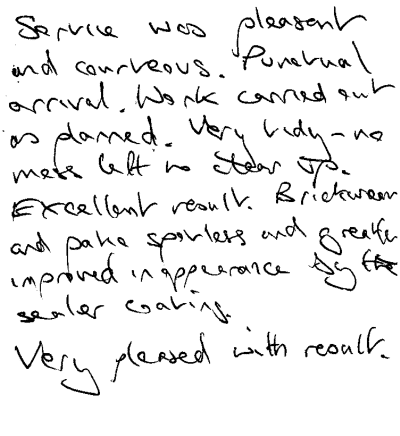 Service was pleasant
and courteous. Punctual
arrival. Work carried out
as planned. Very tidy - no
mess left to clear up.
Excellent result. Brickwork
and patio spotless and greatly
improved in appearance by the
sealer coating.
Very pleased with result.